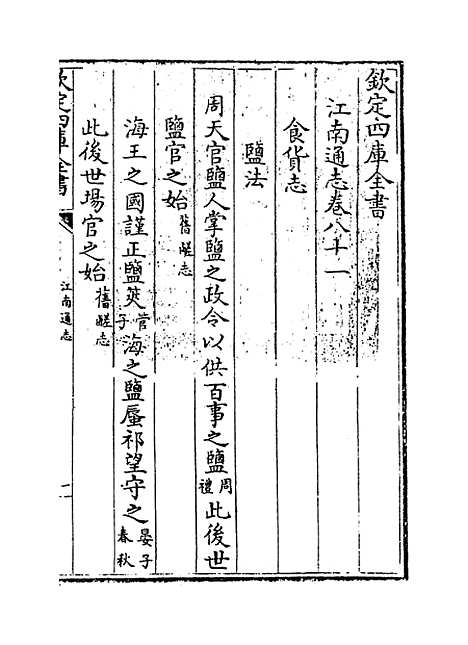 欽定四庫全書
江南通志卷八十一
食貨志
鹽法
周天官鹽人掌鹽之政令以供百事之鹽周禮此後世
鹽官之始舊鹺志
海王之國謹正鹽筴管子海之鹽蜃祁望守之晏子春秋
此後世場官之始舊鹺志
欽定四庫全書
江南通志
一